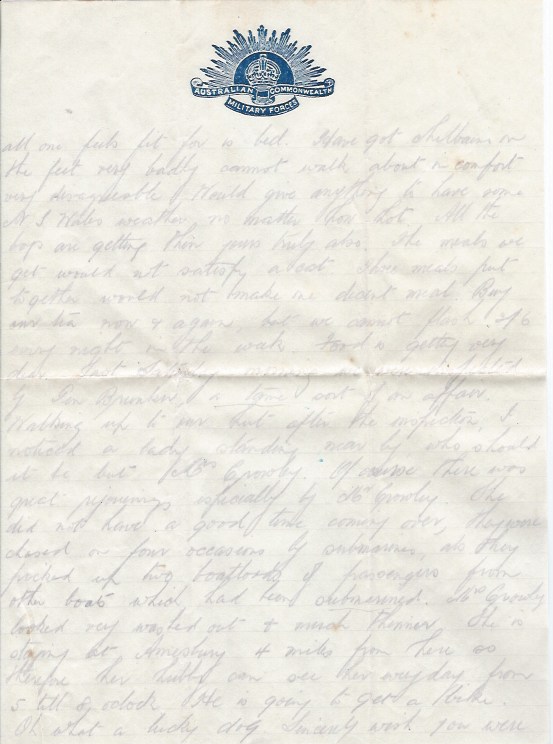 AUSTRALIAN COMMONWEALTH
MILITARY FORCES
all one feels fit for is bed. Have got chilblains on
the feet very badly cannot walk about in comfort
very disagreeable. Would give anything to have some
N S Wales weather, no matter how hot. All the
boys are getting thin yours truly also. The meals we
get would not satisfy a cat. Three meals put
together would not make one decent meal. Buy
our tea now & again, but we cannot flash 2/6
every night in the week. Food is getting very
dear. Last
by Gen a sort of an affair.
Walking up to our hut after the inspection, I
noticed a lady standing near by, who should
it be but Mrs Crowley. Of course there was
great rejoicing especially by Mr Crowley. She
did not have a good time coming over, they were
chased on four occasions by submarines, also they
picked up two boatloads of passengers from
other boats which had been submarined. Mrs Crowley
looked very washed out & much thinner. She is
staying at Amesbury 4 miles from here so
her hubby can see her every day from
5 till 9 oclock. He is going to get a bike.
Oh what a lucky dog sincerely wish you were